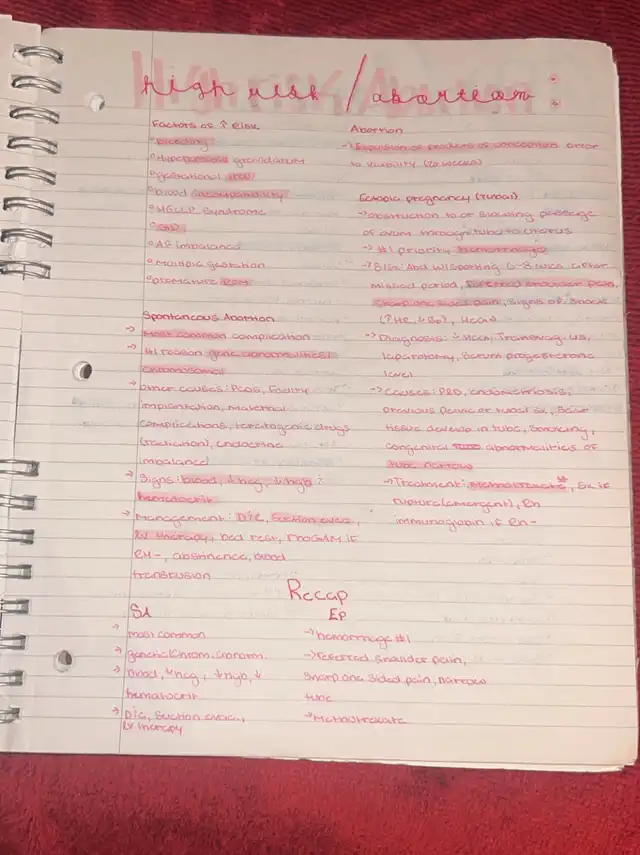 High risk / abortion :
Factors of ↑ risk
° bleeding
° Hyperemesis gravidarum
° gestational
° blood incompatibility
° HELLP Syndrome
° AF imbalance
° Multiple gestation
° premature ROM
Spontaneous Abortion
→ Most common complication
→ #1 reason genetic abnormalities/
chromosomal
→ other causes: PCOS, Faulty
implantation, maternal
complications, teratogenic drugs
(radiation), endocrine
imbalance
→ Signs: blood, ↓hcg, ↓hgb &
hematocrit
→ Management: D/C, Suction evac.,
IV therapy, bed rest, RhoGAM if
RH-, abstinence, blood
transfusion
Abortion
→ Expulsion of products of conception prior
to viability (20 weeks)
Ectopic pregnancy (tubal)
→ obstruction to or slowing passage
of ovum through tube to uterus
→ #1 priority hemorrhage
→ S/Sx: Abd w/ spotting 6-8 wks after
missed period, referred shoulder pain,
sharp one sided pain, signs of shock
(↑HR, ↓BP), ↓hcg
→ Diagnosis: ↓HCG, Transvag. US,
laparotomy, Serum progesterone
level
→ Causes: PID, endometriosis,
previous pelvic or tubal sx, scar
tissue develop in tube, smoking,
congenital abnormalities of
tube narrow
→ Treatment: Methotrexate, Sx if
rupture (emergent), Rh
immunoglobin if Rh-
Recap
SA
→ most common
→ genetic/chrom. abnorm.
→ blood, ↓hcg, ↓hgb, ↓
hematocrit
→ D/C, Suction evac.,
IV therapy
EP
→ hemorrhage #1
→ referred shoulder pain,
sharp one sided pain, narrow
tube
→ Methotrexate